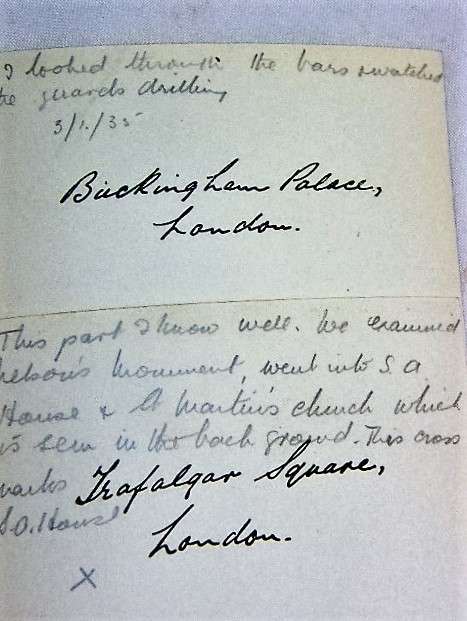 I looked through the bars & watched
the guards drilling
3/1/35
Buckingham Palace,
London.
This part I know well. We examined
Nelson's Monument, went into S. A
House & St Martin's church which
is seen in the back ground. This cross
marks
Trafalgar Square,
S.A. House
London.
X